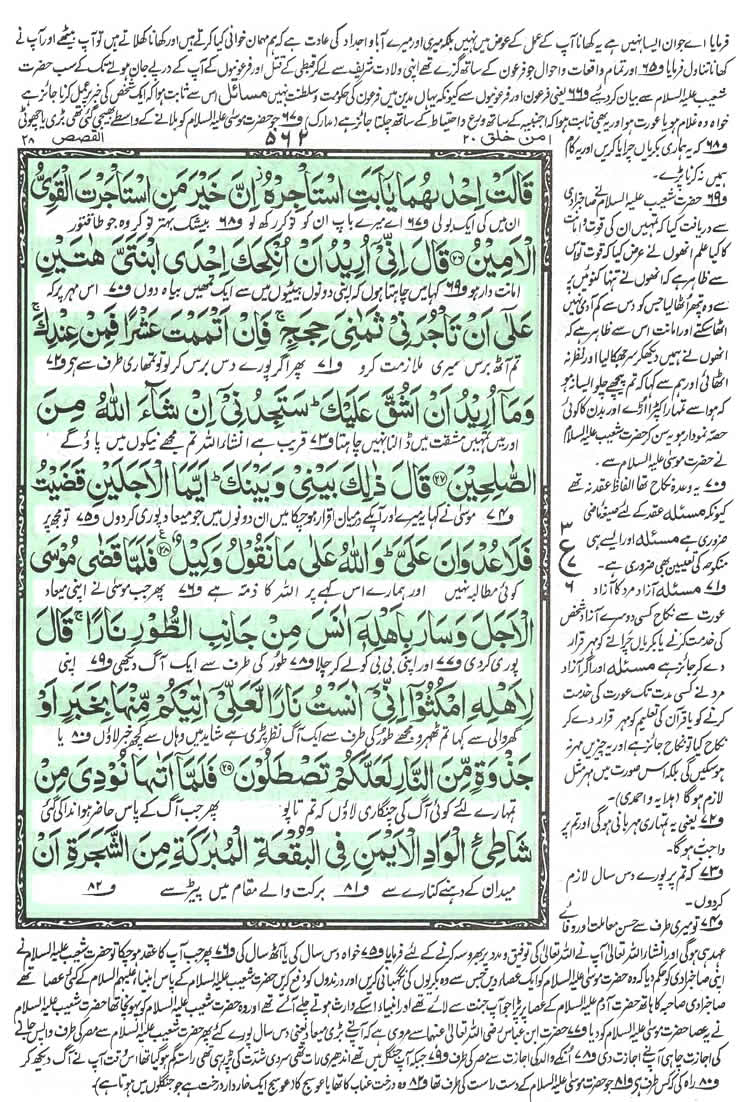 فرمایا اے جوان ایسا نہیں ہے یہ کھانا آپ کے عمل کے عوض میں نہیں بلکہ میری اور میرے آبا و اجداد کی عادت ہے کہ ہم مہمان خوانی کیا کرتے ہیں اور کھانا کھلاتے ہیں تو آپ بیٹھے اور آپ نے
کھانا تناول فرمایا و۶۵ اور تمام واقعات و احوال جو فرعون کے ساتھ گزرے تھے اپنی ولادت شریف سے لے کر قبطی کے قتل اور فرعونیوں کے آپ کے درپے جان ہونے تک کے سب حضرت
شعیب علیہ السلام سے بیان کر دیئے و۶۶ یعنی فرعون اور فرعونیوں سے کیونکہ یہاں مدین میں فرعون کی حکومت و سلطنت نہیں مسائل اس سے ثابت ہوا کہ ایک شخص کی خبر پر عمل کرنا جائز ہے
خواہ وہ غلام ہو یا عورت ہو اور یہ بھی ثابت ہوا کہ اجنبیہ کے ساتھ ورع و احتیاط کے ساتھ چلنا جائز ہے (مدارک) و۶۷ جو حضرت موسیٰ علیہ السلام کو بلانے کے واسطے بھیجی گئی تھی بڑی یا چھوٹی
القصص ۲۸
۵۶۲
امن خلق ۲۰
قَالَتْ اِحْدٰىهُمَا يٰۤاَبَتِ اسْتَاْجِرْهُ ۫ اِنَّ خَيْرَ مَنِ اسْتَاْجَرْتَ الْقَوِيُّ
ان میں کی ایک بولی و۶۷ اے میرے باپ ان کو نوکر رکھ لو و۶۸ بیشک بہتر نوکر وہ جو طاقتور
الْاَمِيْنُ ۲۶ قَالَ اِنِّيْۤ اُرِيْدُ اَنْ اُنْكِحَكَ اِحْدَى ابْنَتَيَّ هٰتَيْنِ
امانت دار ہو و۶۹ کہا میں چاہتا ہوں کہ اپنی دونوں بیٹیوں میں سے ایک تمہیں بیاہ دوں و۷۰ اس مہر پر کہ
عَلٰۤى اَنْ تَاْجُرَنِيْ ثَمٰنِيَ حِجَجٍ ۚ فَاِنْ اَتْمَمْتَ عَشْرًا فَمِنْ عِنْدِكَ ۚ
تم آٹھ برس میری ملازمت کرو و۷۱ پھر اگر پورے دس برس کر لو تو تمہاری طرف سے ہے و۷۲
وَمَاۤ اُرِيْدُ اَنْ اَشُقَّ عَلَيْكَ ؕ سَتَجِدُنِيْۤ اِنْ شَآءَ اللّٰهُ مِنَ
اور میں تمہیں مشقت میں ڈالنا نہیں چاہتا و۷۳ قریب ہے انشاء اللہ تم مجھے نیکوں میں پاؤ گے
الصّٰلِحِيْنَ ۲۷ قَالَ ذٰلِكَ بَيْنِيْ وَبَيْنَكَ ؕ اَيَّمَا الْاَجَلَيْنِ قَضَيْتُ
و۷۴ موسیٰ نے کہا یہ میرے اور آپکے درمیان اقرار ہو چکا میں ان دونوں میں جو میعاد پوری کر دوں و۷۵ تو مجھ پر
فَلَا عُدْوَانَ عَلَيَّ ؕ وَاللّٰهُ عَلٰى مَا نَقُوْلُ وَكِيْلٌ ۲۸ فَلَمَّا قَضٰى مُوْسَى
کوئی مطالبہ نہیں اور ہمارے اس کہے پر اللہ کا ذمہ ہے و۷۶ پھر جب موسیٰ نے اپنی میعاد
الْاَجَلَ وَسَارَ بِاَهْلِهٖۤ اٰنَسَ مِنْ جَانِبِ الطُّوْرِ نَارًا ۚ قَالَ
پوری کر دی و۷۷ اور اپنی بی بی کو لے کر چلا و۷۸ طور کی طرف سے ایک آگ دیکھی و۷۹ اپنی
لِاَهْلِهِ امْكُثُوْۤا اِنِّيْۤ اٰنَسْتُ نَارًا لَّعَلِّيْۤ اٰتِيْكُمْ مِّنْهَا بِخَبَرٍ اَوْ
گھر والی سے کہا تم ٹھہرو مجھے طور کی طرف سے ایک آگ نظر پڑی ہے شاید میں وہاں سے کچھ خبر لاؤں و۸۰ یا
جَذْوَةٍ مِّنَ النَّارِ لَعَلَّكُمْ تَصْطَلُوْنَ ۲۹ فَلَمَّاۤ اَتٰىهَا نُوْدِيَ مِنْ
تمہارے لئے کوئی آگ کی چنگاری لاؤں کہ تم تاپو پھر جب آگ کے پاس حاضر ہوا ندا کی گئی
شَاطِئِ الْوَادِ الْاَيْمَنِ فِي الْبُقْعَةِ الْمُبٰرَكَةِ مِنَ الشَّجَرَةِ اَنْ
میدان کے دہنے کنارے سے و۸۱ برکت والے مقام میں پیڑ سے و۸۲
ع
۳
۶
و۶۸ کہ یہ ہماری بکریاں چرایا کریں اور یہ کام
ہمیں نہ کرنا پڑے۔
و۶۹ حضرت شعیب علیہ السلام نے صاحزادی
سے دریافت کیا کہ تمہیں ان کی قوت و امانت
کا کیا علم انھوں نے عرض کیا کہ قوت تو اس
سے ظاہر ہے کہ انھوں نے تنہا کنوئیں پر
سے وہ پتھر اٹھا لیا جس کو دس سے کم آدمی نہیں
اٹھا سکتے اور امانت اس سے ظاہر ہے کہ
انھوں نے ہمیں دیکھ کر سر جھکا لیا اور نظر نہ
اٹھائی اور ہم سے کہا کہ تم پیچھے چلو ایسا نہ ہو
کہ ہوا سے تمہارا کپڑا اڑے اور بدن کا کوئی
حصہ نمودار ہو یہ سن کر حضرت شعیب علیہ السلام
نے حضرت موسیٰ علیہ السلام سے۔
و۷۰ یہ وعدۂ نکاح تھا الفاظ عقد نہ تھے
کیونکہ مسئلہ عقد کے لئے صیغہ ماضی
ضروری ہے مسئلہ اور ایسے ہی
منکوحہ کی تعیین بھی ضروری ہے۔
و۷۱ مسئلہ آزاد مرد کا آزاد
عورت سے نکاح کسی دوسرے آزاد شخص
کی خدمت کرنے یا بکریاں چرانے کو مہر قرار
دے کر جائز ہے مسئلہ اور اگر آزاد
مرد نے کسی مدت تک عورت کی خدمت
کرنے کو یا قرآن کی تعلیم کو مہر قرار دے کر
نکاح کیا تو نکاح جائز ہے اور یہ چیزیں مہر نہ
ہو سکیں گی بلکہ اس صورت میں مہر مثل
لازم ہو گا (ہدایہ و احمدی)۔
و۷۲ یعنی یہ تمہاری مہربانی ہو گی اور تم پر
واجب نہ ہو گا۔
و۷۳ کہ تم پر پورے دس سال لازم
کر دوں۔
و۷۴ تو میری طرف سے حسن معاملت اور وفائے
عہد ہی ہو گی اور انشاء اللہ تعالیٰ آپ نے اللہ تعالیٰ کی توفیق و مدد پر بھروسہ کرنے کے لئے فرمایا و۷۵ خواہ دس سال کی یا آٹھ سال کی و۷۶ پھر جب آپ کا عقد ہو چکا تو حضرت شعیب علیہ السلام نے
اپنی صاحزادی کو حکم دیا کہ وہ حضرت موسیٰ علیہ السلام کو ایک عصا دیں جس سے وہ بکریوں کی نگہبانی کریں اور درندوں کو دفع کریں حضرت شعیب علیہ السلام کے پاس انبیاء علیہم السلام کے کئی عصا تھے
صاحزادی صاحبہ کا ہاتھ حضرت آدم علیہ السلام کے عصا پر پڑا جو آپ جنت سے لائے تھے اور انبیاء اسکے وارث ہوتے چلے آئے تھے اور وہ حضرت شعیب علیہ السلام کو پہونچا تھا حضرت شعیب علیہ السلام
نے یہ عصا حضرت موسیٰ علیہ السلام کو دیا و۷۷ حضرت ابن عباس رضی اللہ تعالیٰ عنہما سے مروی ہے کہ آپ نے بڑی میعاد یعنی دس سال پورے کئے پھر حضرت شعیب علیہ السلام سے مصر کی طرف واپس جانے
کی اجازت چاہی آپ نے اجازت دی و۷۸ انکے والد کی اجازت سے مصر کی طرف و۷۹ جبکہ آپ جنگل میں تھے اندھیری رات تھی سردی شدت کی پڑ رہی تھی راستہ گم ہو گیا تھا اس وقت آپ نے آگ دیکھ کر
و۸۰ راہ کی کہ کس طرف ہے و۸۱ جو حضرت موسیٰ علیہ السلام کے دست راست کی طرف تھا و۸۲ وہ درخت عناب کا تھا یا عوسج کا (عوسج ایک خاردار درخت ہے جو جنگلوں میں ہوتا ہے)